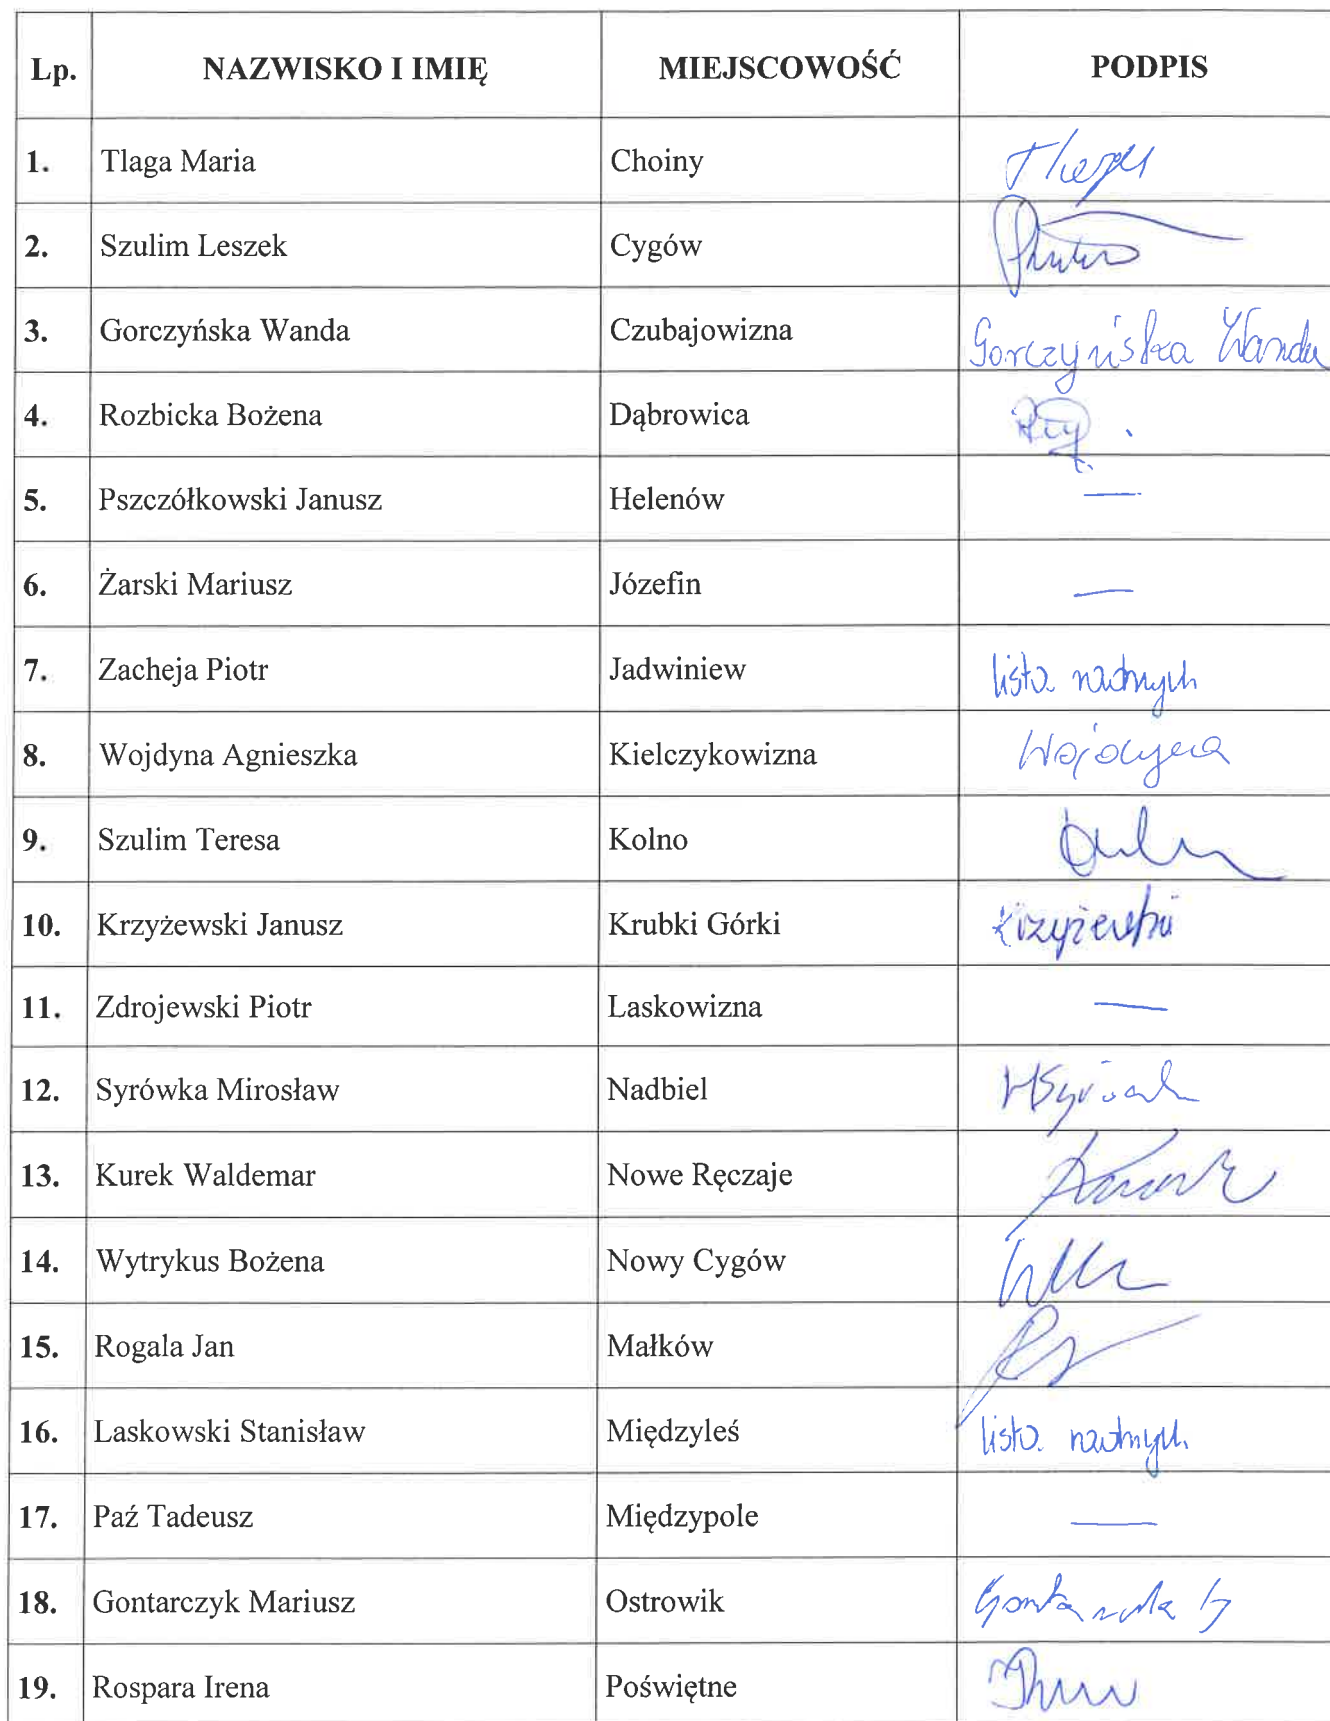 Lp. NAZWISKO I IMIĘ MIEJSCOWOŚĆ PODPIS
1. Tlaga Maria Choiny
2. Szulim Leszek Cygów
3. Gorczyńska Wanda Czubajowizna Gorczyńska Wanda
4. Rozbicka Bożena Dąbrowica
5. Pszczółkowski Janusz Helenów —
6. Żarski Mariusz Józefin —
7. Zacheja Piotr Jadwiniew lista radnych
8. Wojdyna Agnieszka Kielczykowizna Wojdyna
9. Szulim Teresa Kolno
10. Krzyżewski Janusz Krubki Górki Krzyżewski
11. Zdrojewski Piotr Laskowizna —
12. Syrówka Mirosław Nadbiel
13. Kurek Waldemar Nowe Ręczaje
14. Wytrykus Bożena Nowy Cygów
15. Rogala Jan Małków
16. Laskowski Stanisław Międzyleś lista radnych
17. Paź Tadeusz Międzypole —
18. Gontarczyk Mariusz Ostrowik
19. Rospara Irena Poświętne